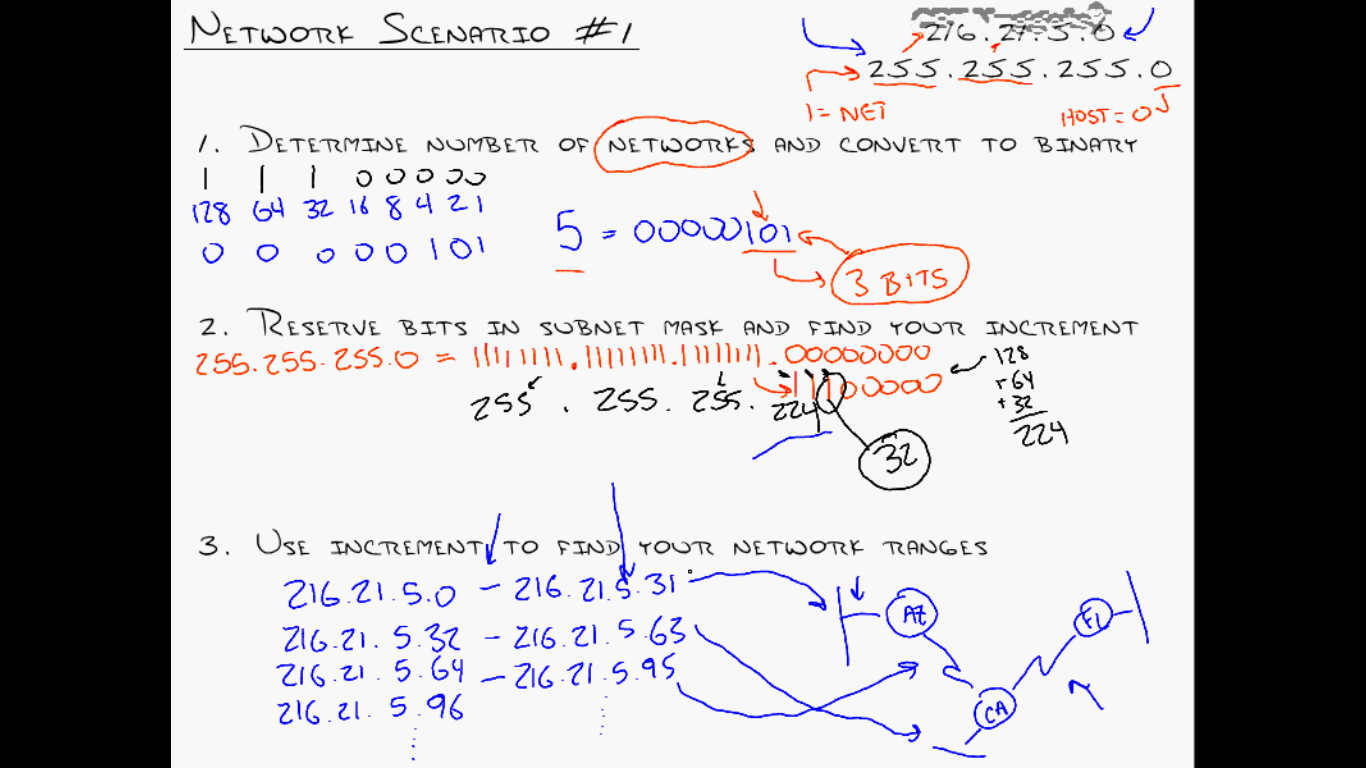 NETWORK SCENARIO #1
216.21.5.0
255.255.255.0
1 = NET
HOST = 0
1. DETERMINE NUMBER OF NETWORKS AND CONVERT TO BINARY
1 1 1 0 0 0 0 0
128 64 32 16 8 4 2 1
0 0 0 0 0 1 0 1
5 = 00000101
3 BITS
2. RESERVE BITS IN SUBNET MASK AND FIND YOUR INCREMENT
255.255.255.0 = 11111111.11111111.11111111.00000000
11100000
255 . 255. 255. 224
32
128
+64
+32
224
3. USE INCREMENT TO FIND YOUR NETWORK RANGES
216.21.5.0 - 216.21.5.31
216.21.5.32 - 216.21.5.63
216.21.5.64 - 216.21.5.95
216.21.5.96
AZ
FL
CA